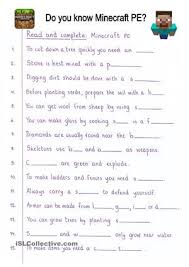 Do you know Minecraft PE?
Read and complete: Minecraft PE
1. To cut down a tree quickly you need an
2. Stone is best mined with a p
3. Digging dirt should be done with a s
4. Before planting seeds, prepare the soil with a h
5. You can get wool from sheep by using s
6. You can make glass by cooking s in a f
7. Diamonds are usually found near the b
8. Skeletons use b and a as weapons.
9. C are green and explode.
10. To make ladders and fences you need s
11. Always carry a s to defend yourself.
12. Armor can be made from l, i, g or d
13. You can grow trees by planting s
14. S and w only grow near water
15. To make signs you need s
iSLCollective.com